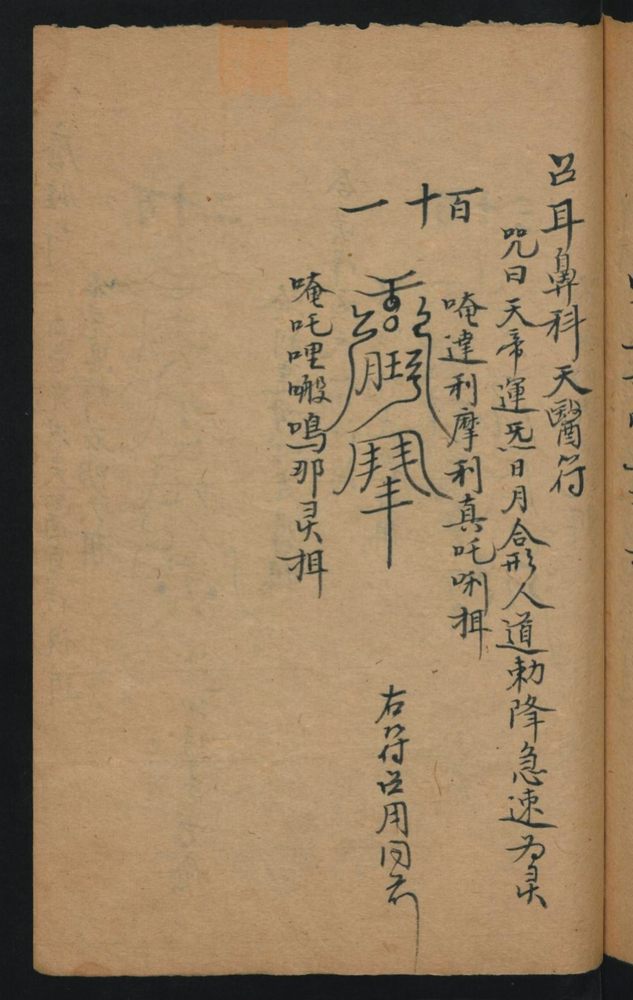 召耳鼻科天醫符
咒曰天帝運炁日月合形人道勅降急速為灵
百十一
唵達利摩利真吒唎揖
唵吒哩㗨嗚那灵揖
右符召用同前